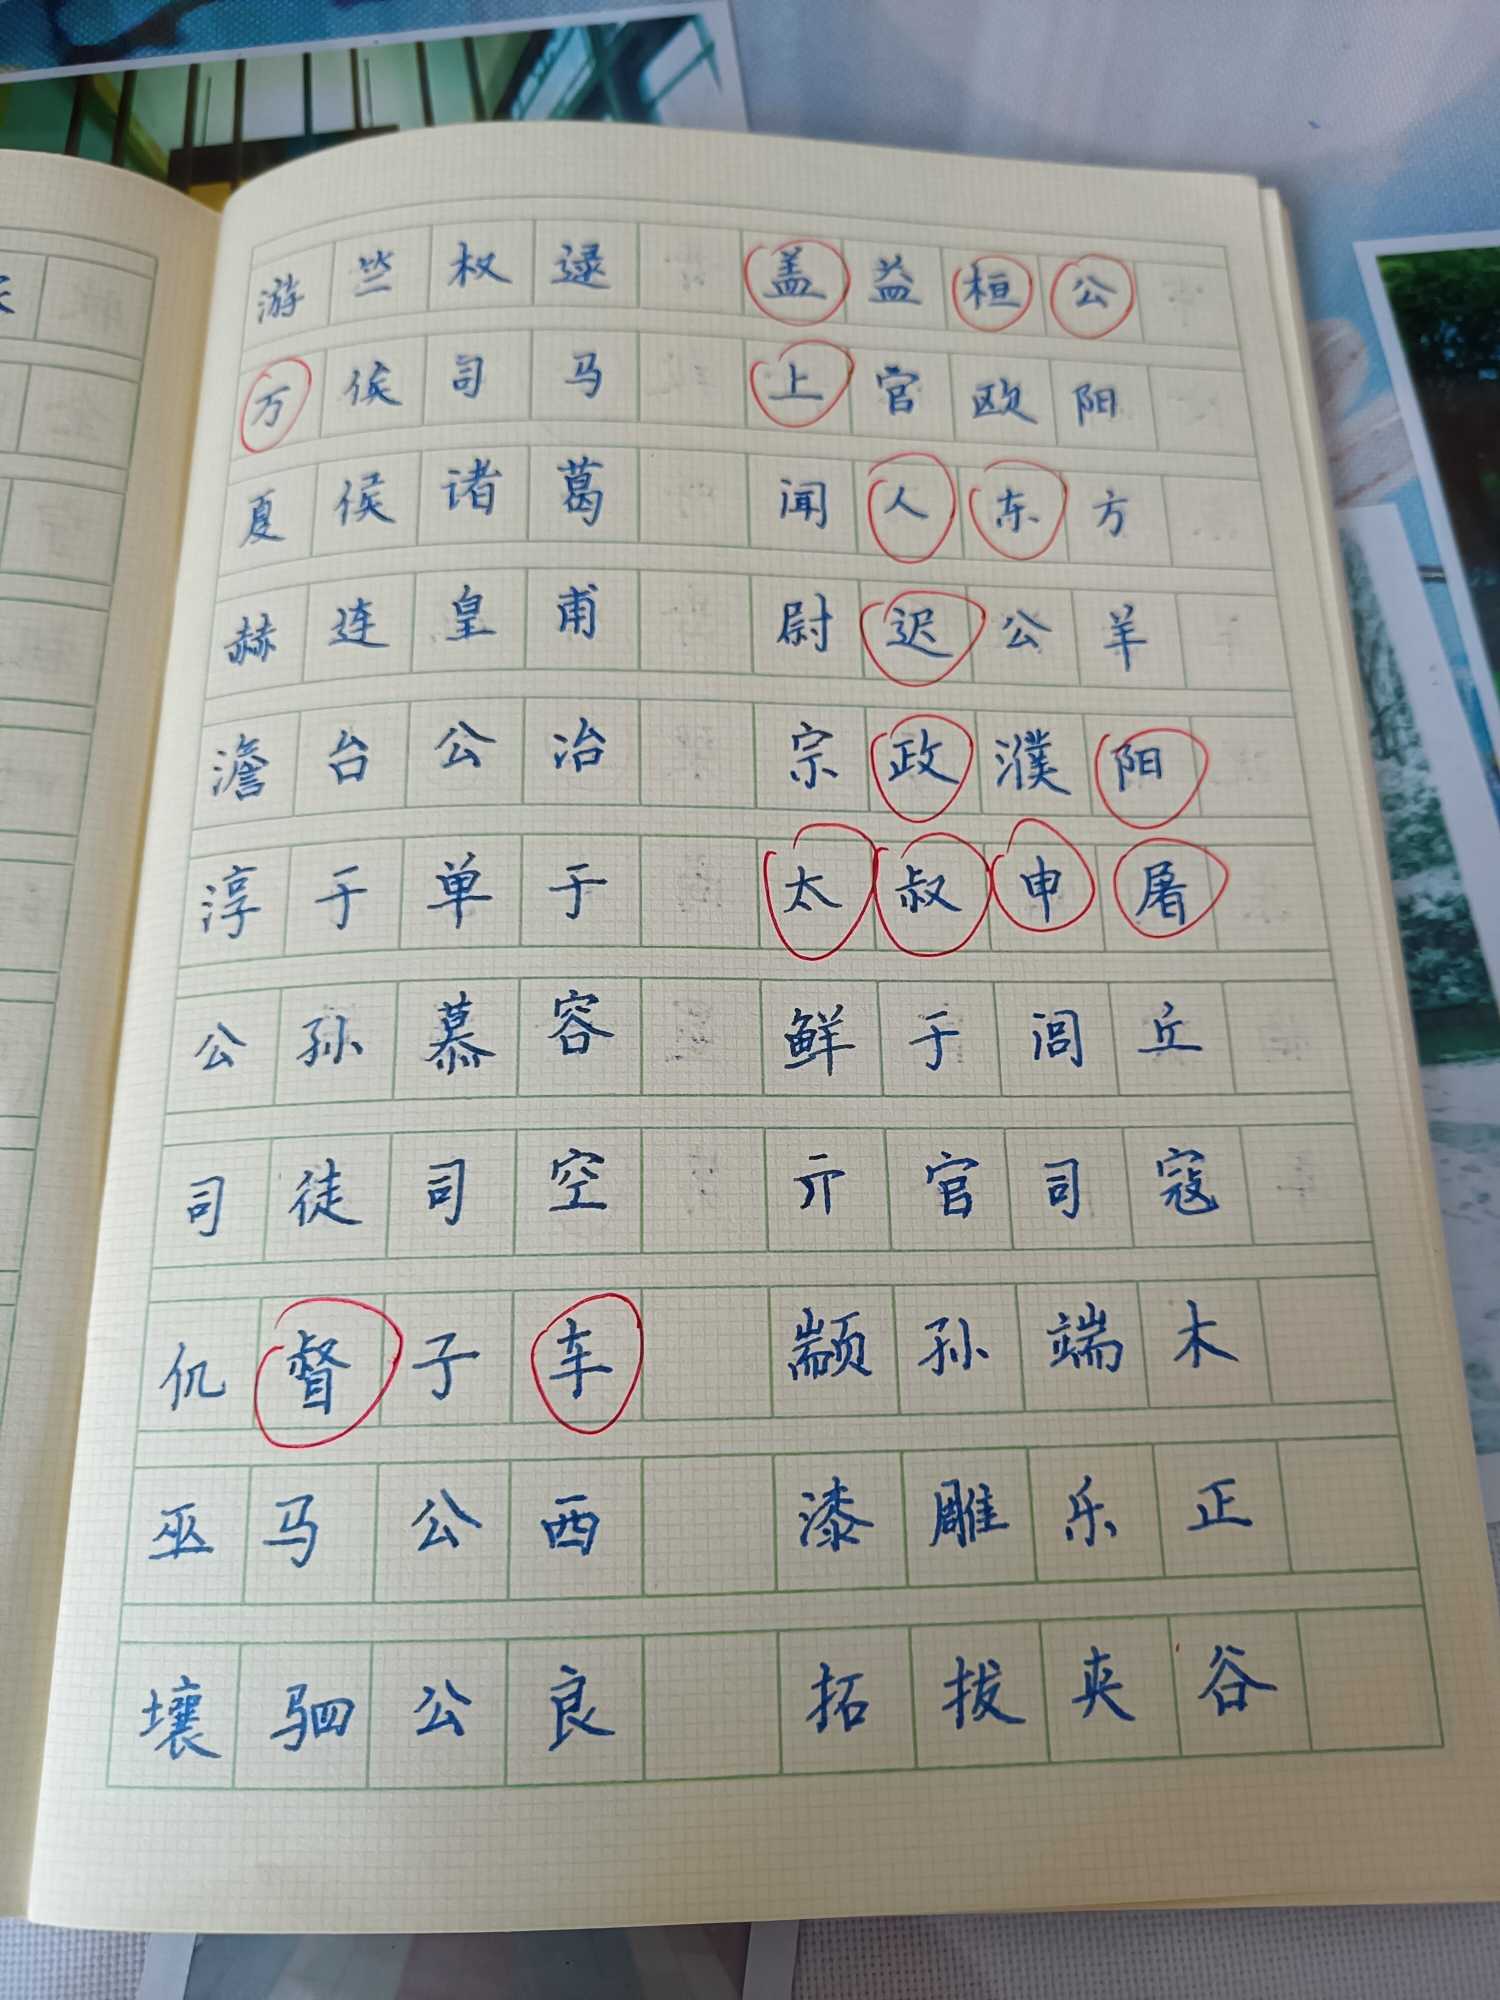 游竺权逯 盖益桓公
万俟司马 上官欧阳
夏侯诸葛 闻人东方
赫连皇甫 尉迟公羊
澹台公冶 宗政濮阳
淳于单于 太叔申屠
公孙慕容 鲜于闾丘
司徒司空 亓官司寇
仉督子车 颛孙端木
巫马公西 漆雕乐正
壤驷公良 拓拔夹谷